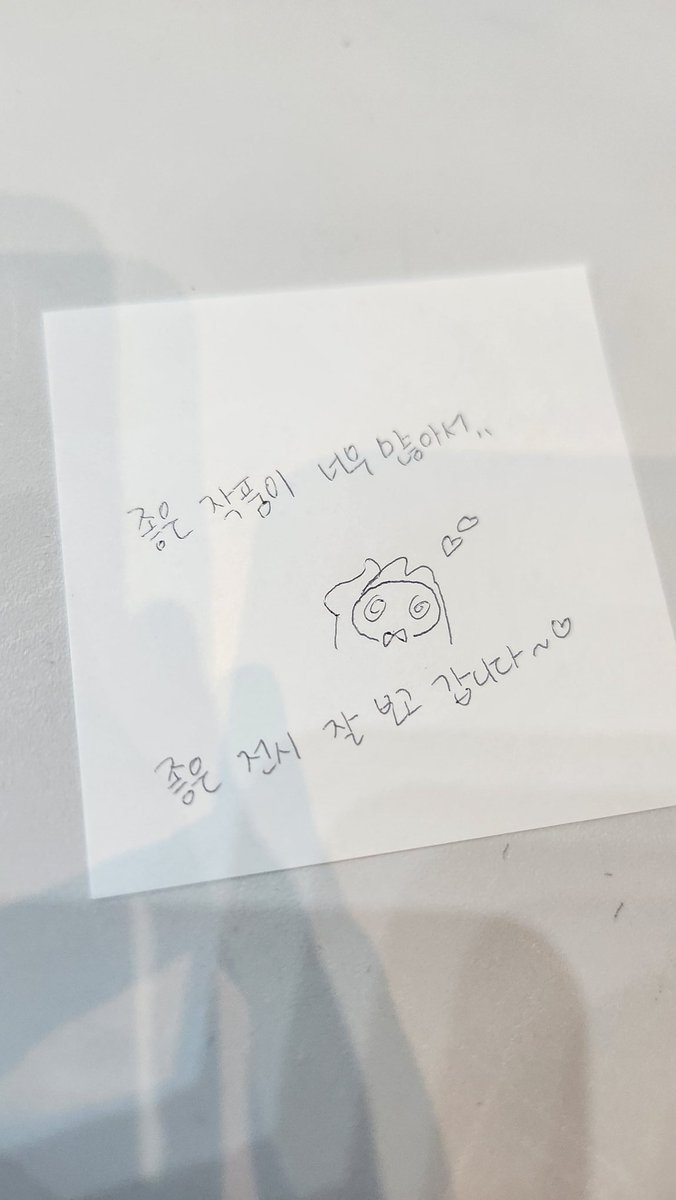 좋은 작품이 너무 많아서..
좋은 전시 잘 보고 갑니다~♡